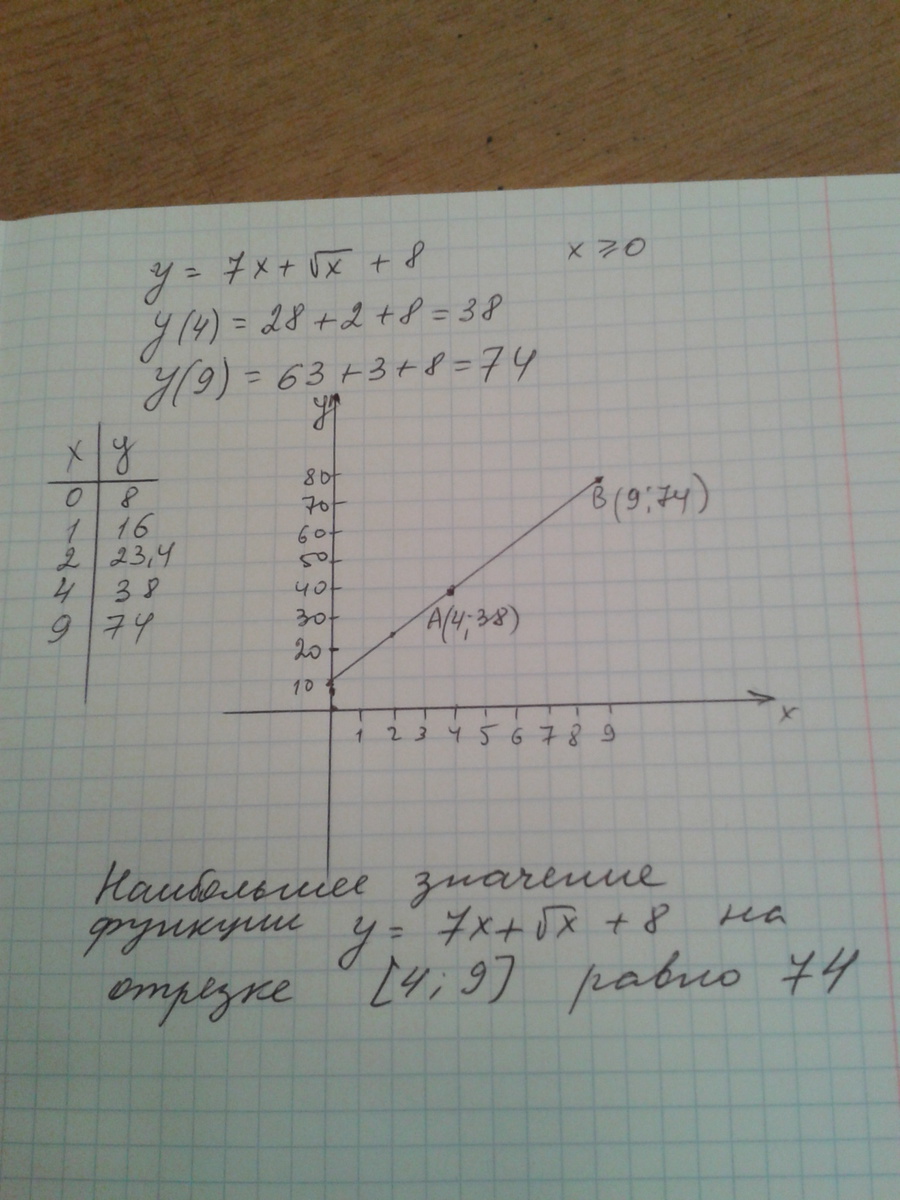 y = 7x + √x + 8
x ⩾ 0
y(4) = 28 + 2 + 8 = 38
y(9) = 63 + 3 + 8 = 74
x y
0 8
1 16
2 23,4
4 38
9 74
y
80
70
60
50
40
30
20
10
B(9;74)
A(4;38)
1 2 3 4 5 6 7 8 9
x
Наибольшее значение
функции y = 7x + √x + 8 на
отрезке [4; 9] равно 74